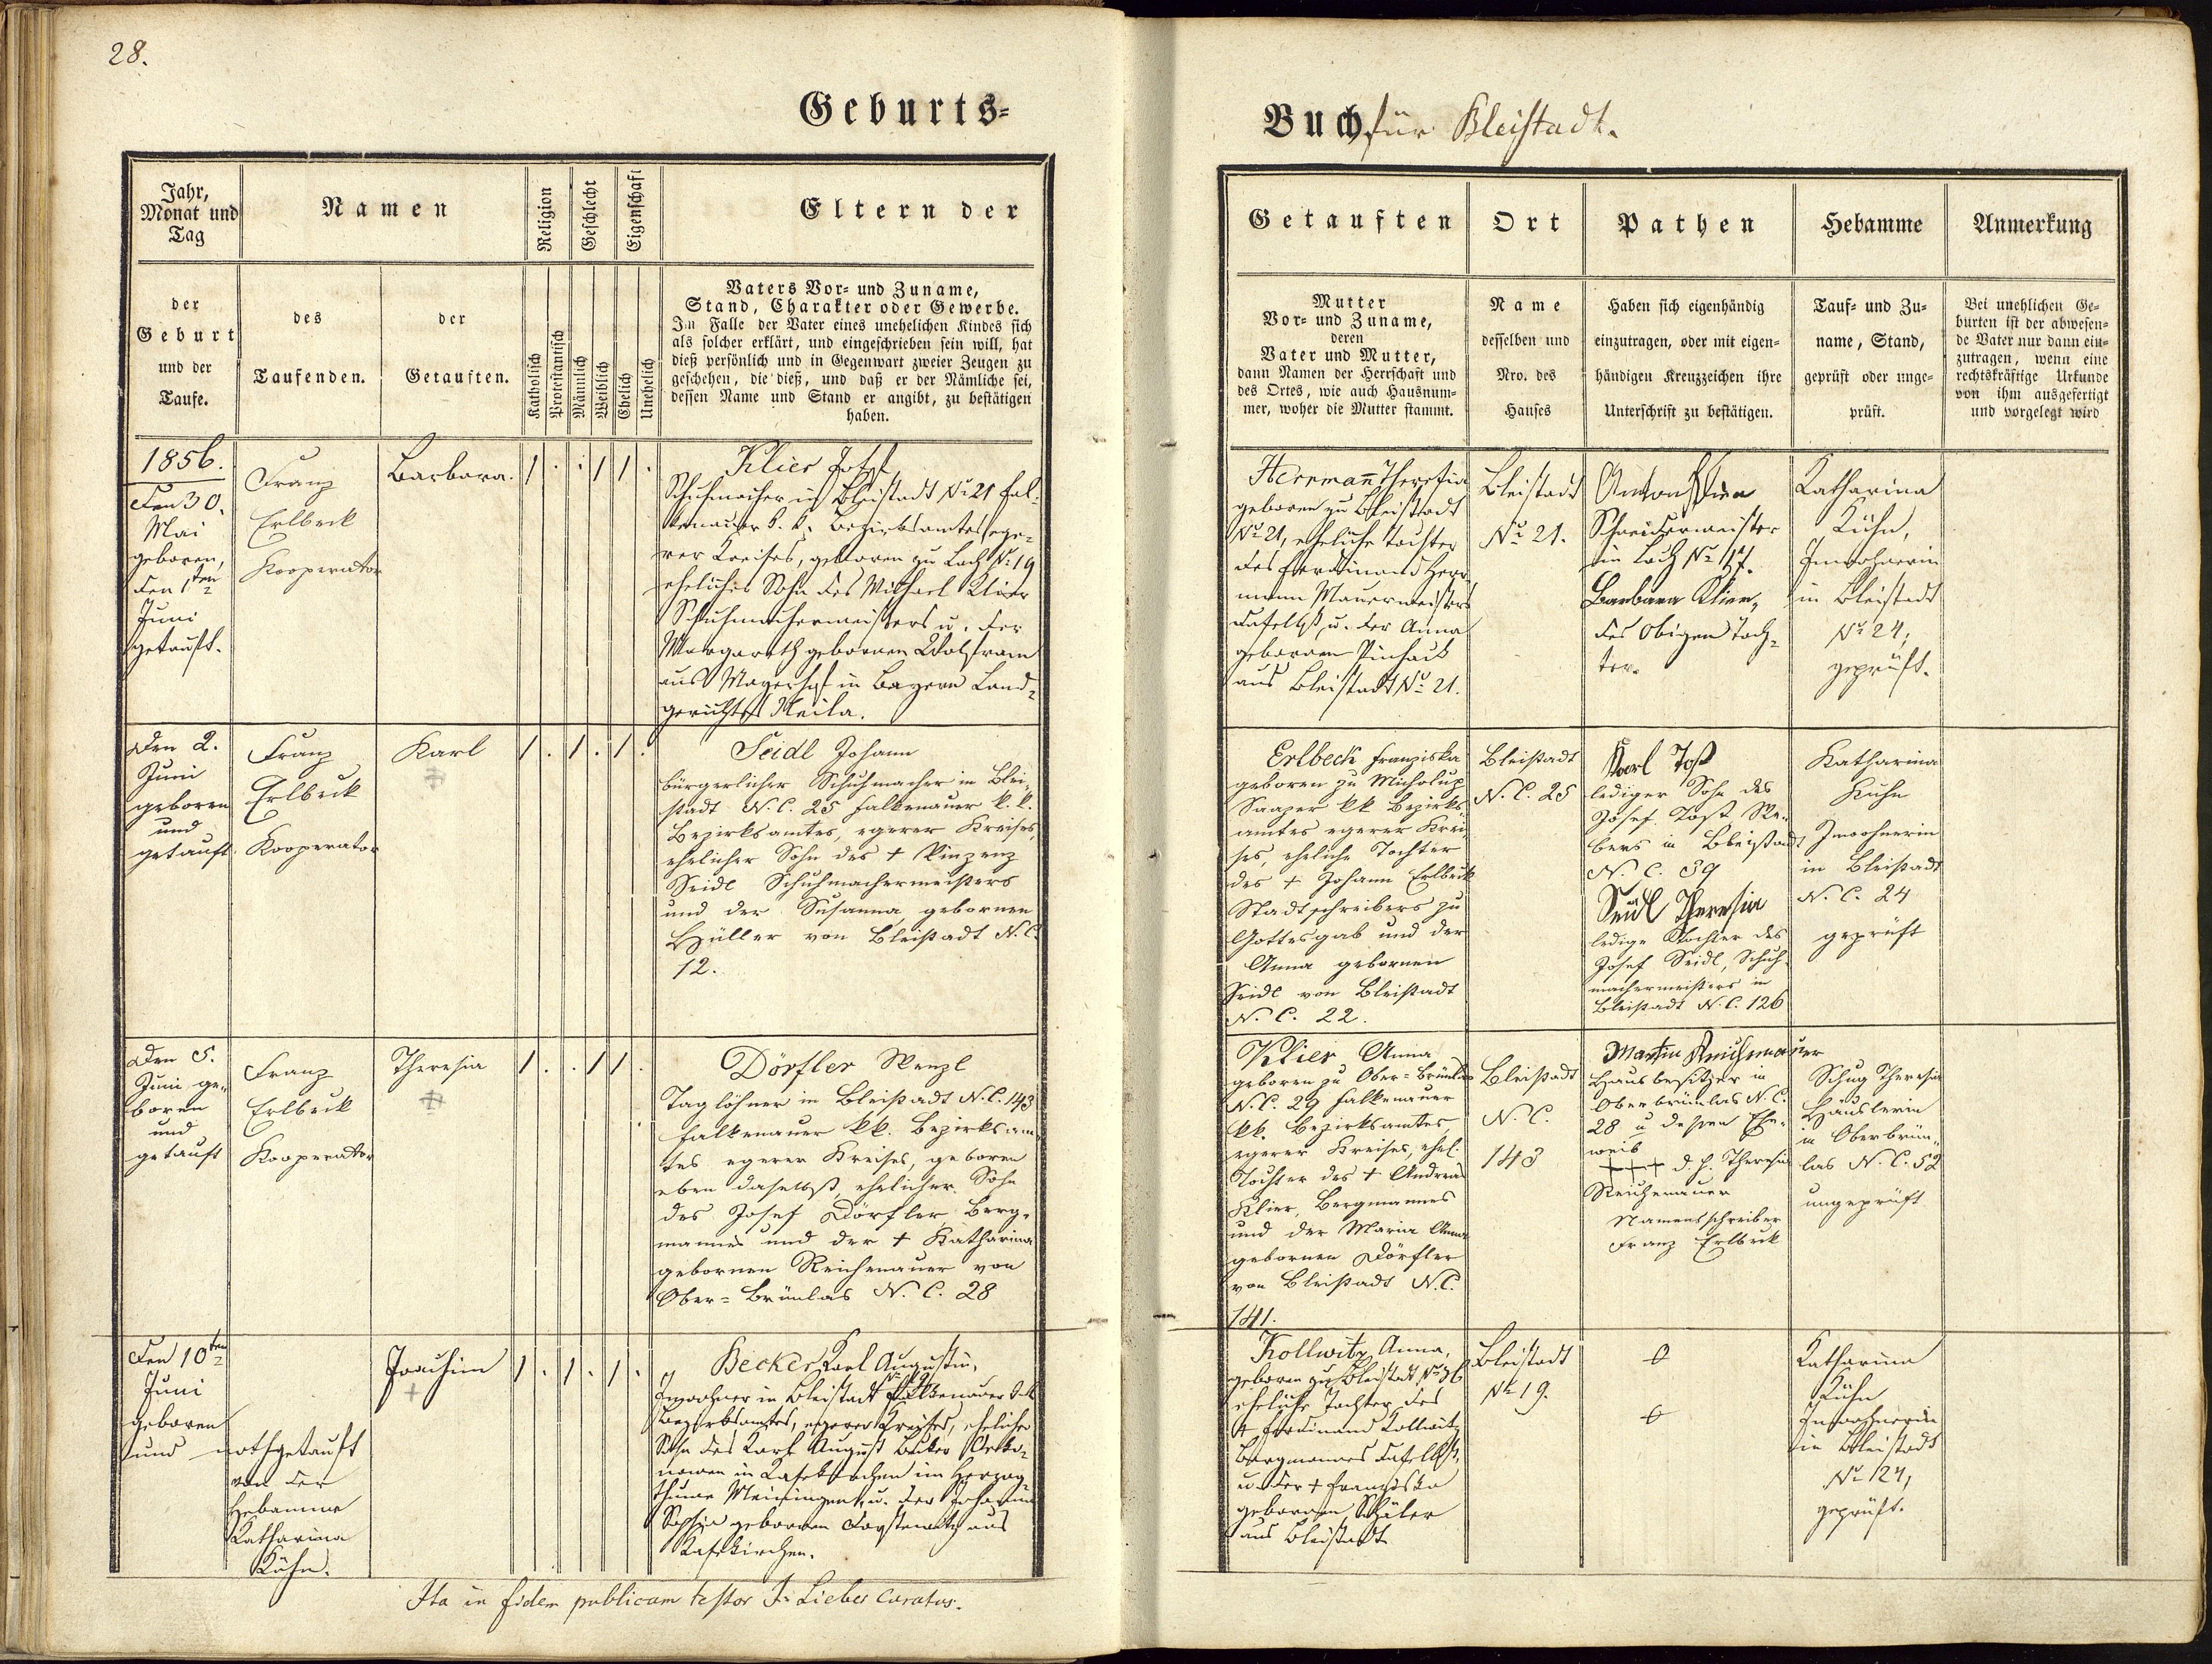 28.
Geburts-
Buch für Bleistadt.
Jahr,
Monat und
Tag
Namen
Religion
Geschlecht
Eigenschaft
Eltern der
der
Geburt
und der
Taufe.
des
Taufenden.
der
Getauften.
Katholisch
Protestantisch
Männlich
Weiblich
Ehelich
Unehelich
Vaters Vor- und Zuname,
Stand, Charakter oder Gewerbe.
Im Falle der Vater eines unehelichen Kindes sich
als solcher erklärt, und eingeschrieben sein will, hat
dieß persönlich und in Gegenwart zweier Zeugen zu
geschehen, die dieß, und daß er der Nämliche sei,
dessen Name und Stand er angibt, zu bestätigen
haben.
Getauften
Ort
Pathen
Hebamme
Anmerkung
Mutter
Vor- und Zuname,
deren
Vater und Mutter,
dann Namen der Herrschaft und
des Ortes, wie auch Hausnum-
mer, woher die Mutter stammt.
Name
desselben und
Nro. des
Hauses
Haben sich eigenhändig
einzutragen, oder mit eigen-
händigen Kreuzzeichen ihre
Unterschrift zu bestätigen.
Tauf- und Zu-
name, Stand,
geprüft oder unge-
prüft.
Bei unehlichen Ge-
burten ist der abwesen-
de Vater nur dann ein-
zutragen, wenn eine
rechtskräftige Urkunde
von ihm ausgefertigt
und vorgelegt wird
1856.
Den 30.
Mai
geboren,
den 1ten
Juni
getauft.
Franz
Erlbeck
Kooperator
Barbara.
1 . . 1 1 .
Klier Josef
Schuhmacher in Bleistadt No 21 Fal-
kenauer k. k. Bezirksamtes, ege-
rer Kreises, geboren zu Loch No 19
ehelicher Sohn des Michael Klier
Schuhmachermeisters u. der
Margareth gebornen Wolfram
aus in Bayern Land-
gerichtes Naila.
Herrmann Theresia
geboren zu Bleistadt
No 21, eheliche Tochter
des Ferdinand Herr-
mann Mauermeisters
daselbst u. der Anna
gebornen
aus Bleistadt No 21.
Bleistadt
No 21.
Anton Klier
Schneidermeister
in Loch No 17.
Barbara Klier,
des Obigen Toch-
ter.
Katharina
Kühn,
Inwohnerin
in Bleistadt
No 24,
geprüft.
Den 2.
Juni
geboren
und
getauft.
Franz
Erlbeck
Kooperator
Karl
1 . 1 . 1 .
Seidl Johann
bürgerlicher Schuhmacher in Blei-
stadt N. C. 25 falkenauer k. k.
Bezirksamtes, egerer Kreises,
ehelicher Sohn des † Vinzenz
Seidl Schuhmachermeisters
und der Susanna, gebornen
Hüller von Bleistadt N. C.
12.
Erlbeck Franziska
geboren zu Micholup
Saazer kk Bezirks-
amtes egerer Krei-
ses, eheliche Tochter
des † Johann Erlbeck
Stadtschreibers zu
Gottesgab und der
Anna gebornen
Seidl von Bleistadt
N. C. 22.
Bleistadt
N. C. 25
Karl Toß
lediger Sohn des
Josef Toß We-
bers in Bleistadt
N. C. 39
Seidl Theresia
ledige Tochter des
Josef Seidl, Schuh-
machermeisters in
Bleistadt N. C. 126
Katharina
Kühn
Inwohnerin
in Bleistadt
N. C. 24
geprüft
Den 5.
Juni ge-
boren
und
getauft
Franz
Erlbeck
Kooperator
Theresia
1 . . 1 1 .
Dörfler Wenzl
Taglöhner in Bleistadt N. C. 143
falkenauer kk. Bezirksam-
tes egerer Kreises, geboren
eben daselbst, ehelicher Sohn
des Josef Dörfler Berg-
mannes und der † Katharina
gebornen Reichenauer von
Ober-Brünlas N. C. 28
Klier Anna
geboren zu Ober-Brünlas
N. C. 29 falkenauer
kk. Bezirksamtes,
egerer Kreises, ehel.
Tochter des † Andreas
Klier, Bergmannes
und der Maria Anna
gebornen Dörfler
von Bleistadt N. C.
141.
Bleistadt
N. C.
143
Martin Reichenauer
Hausbesitzer in
Oberbrünlas N. C.
28 u. dessen Ehe-
weib
+++ d. h. Theresia
Reichenauer
Namensschreiber
Franz Erlbeck
Schug Theresia
Häuslerin
in Oberbrün-
las N. C. 52
ungeprüft
Den 10ten
Juni
geboren
und nothgetauft
von der
Hebamme
Katharina
Kühn.
Joachim
1 . 1 . 1 .
Becker Karl Augustin,
Inwohner in Bleistadt No 19 Falkenauer k. k.
Bezirksamtes, egerer Kreises, ehelicher
Sohn des Karl August Becker Oeko-
nomen in im Herzog-
thume Meiningen, u. der Johanna
Sophia gebornen aus
Kollwitz Anna,
geboren zu Bleistadt No 36
eheliche Tochter des
† Ferdinand Kollwitz
Bergmannes daselbst,
u. der † Franziska
gebornen
aus Bleistadt
Bleistadt
No 19.
Katharina
Kühn
Inwohnerin
in Bleistadt
No 124,
geprüft.
Ita in fidem publicam testor J. Lieber Curatus.